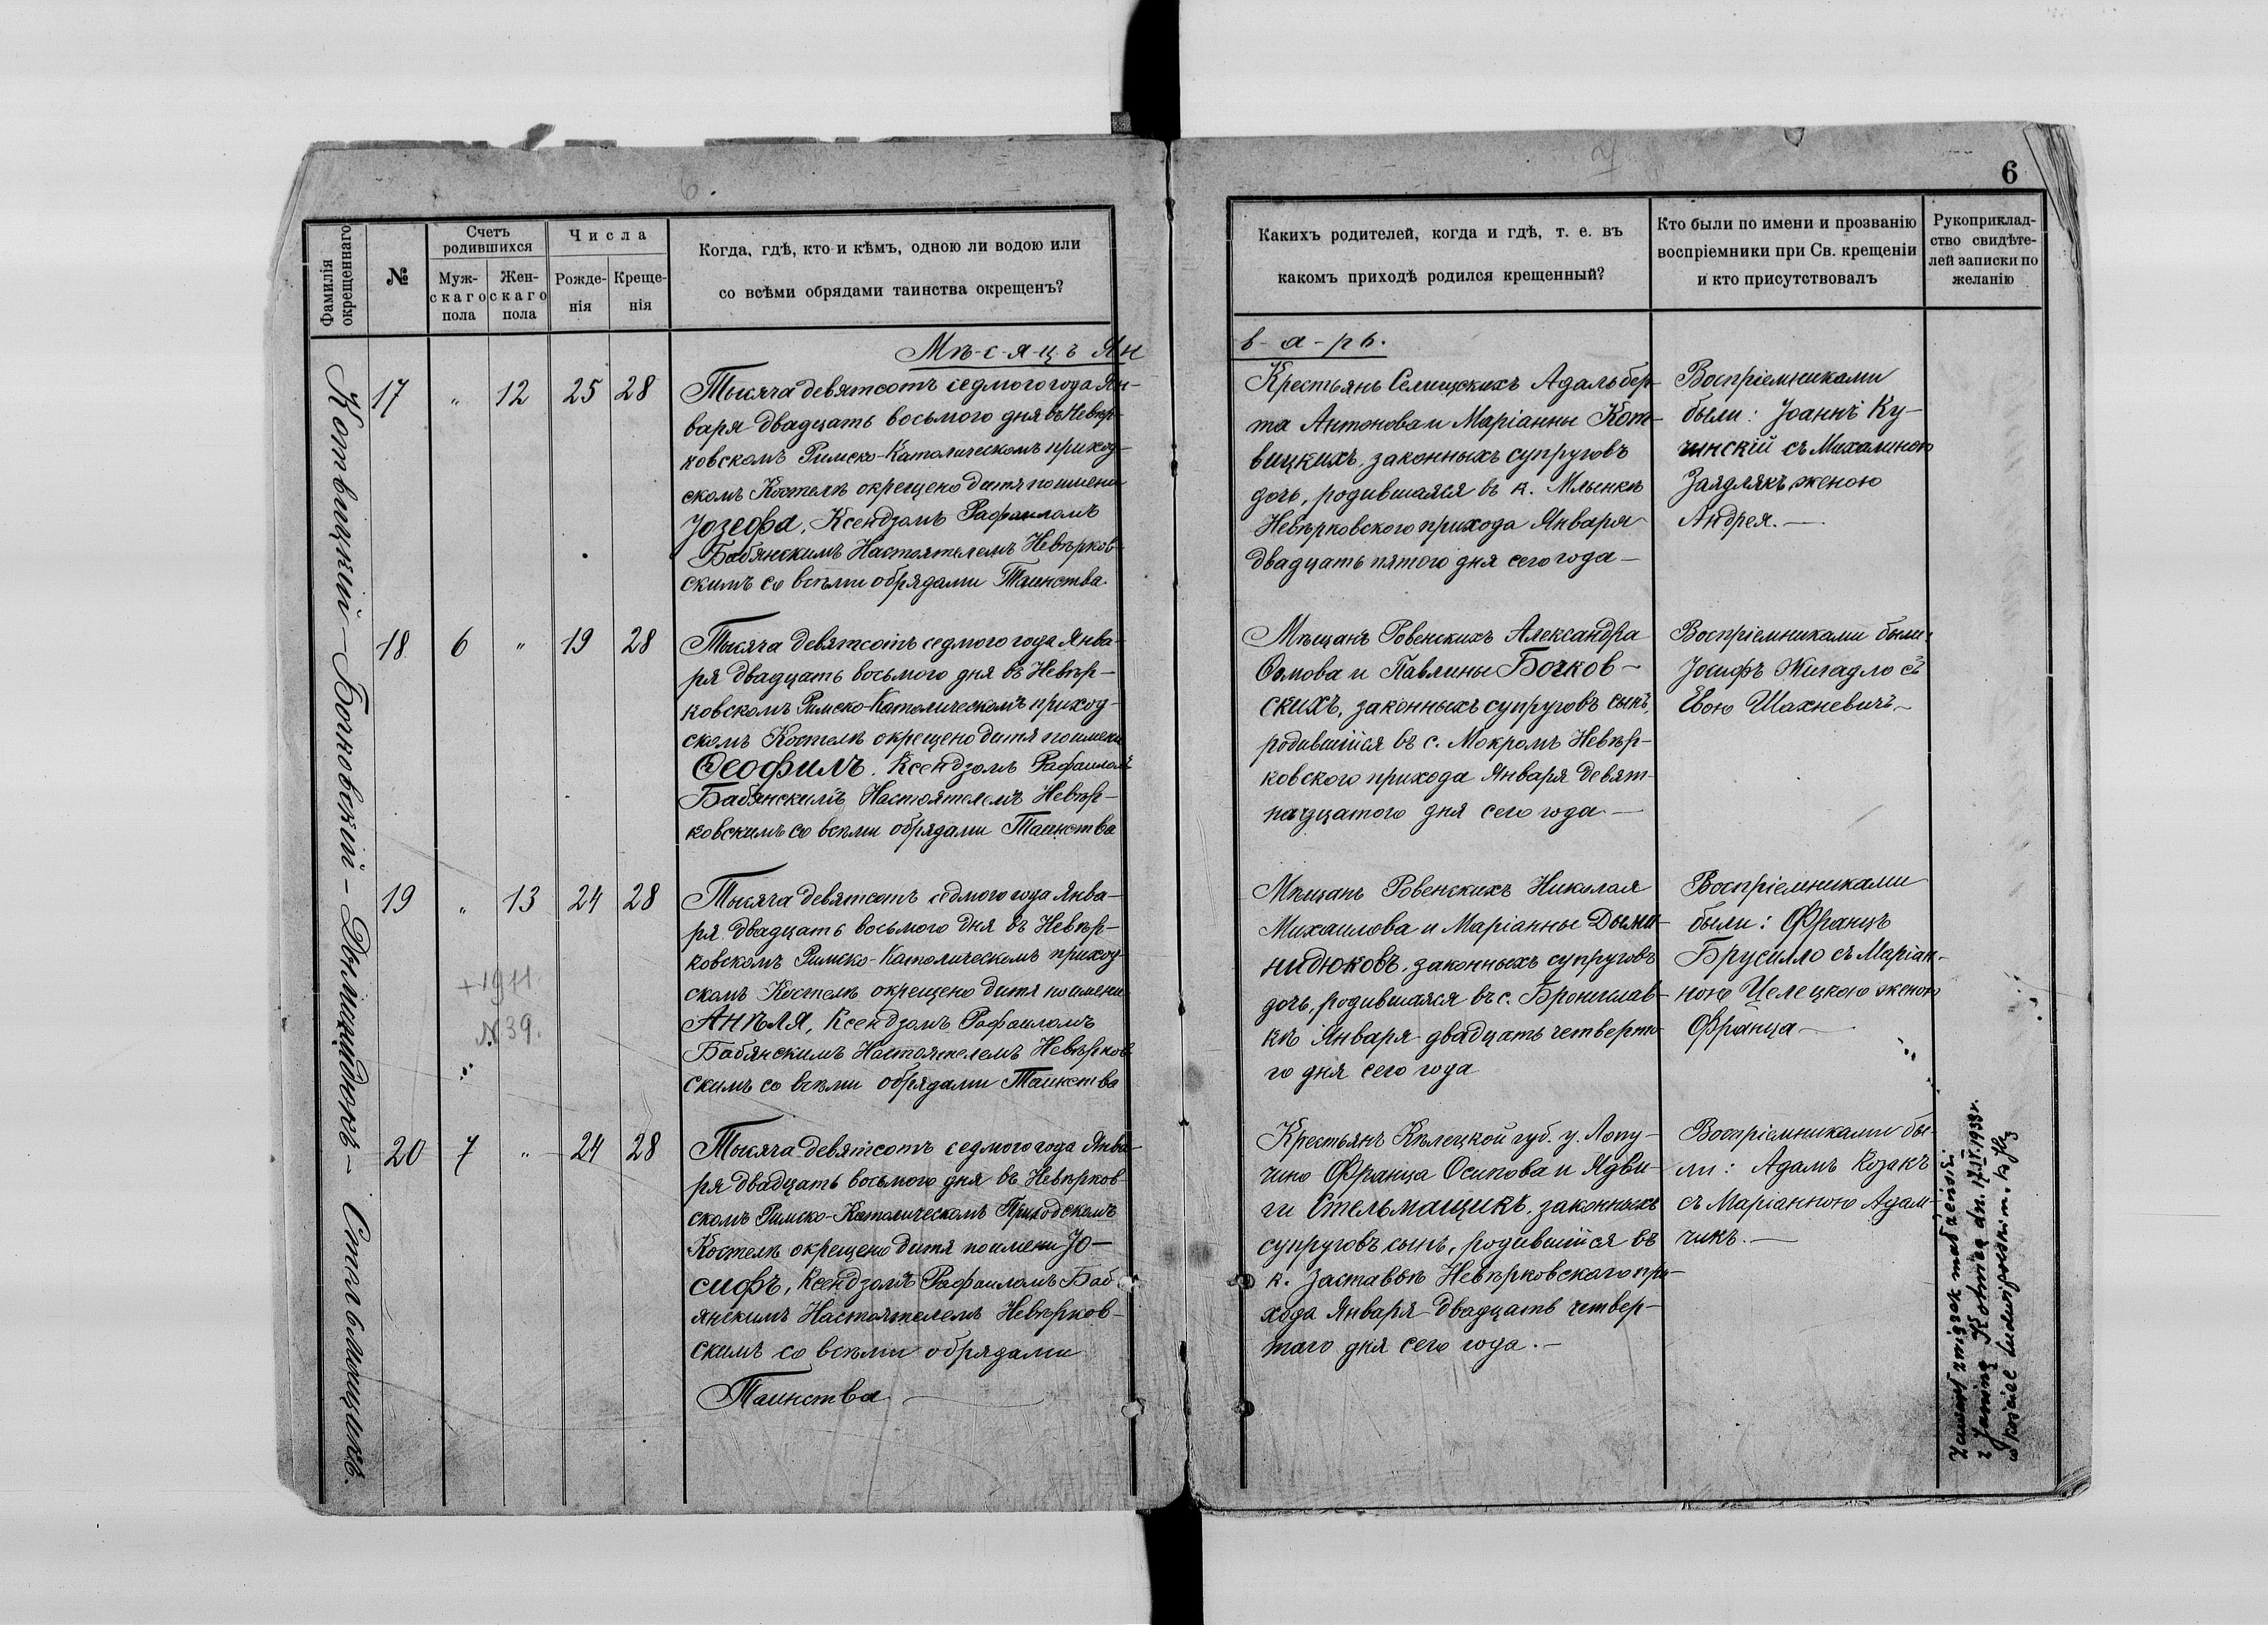 6.
7
6
Фамилія
окрещеннаго
№
Счетъ
родившихся
Муж-
скаго
пола
Жен-
скаго
пола
Числа
Рожде-
нія
Креще-
нія
Когда, гдѣ, кто и кѣмъ, одною ли водою или
со всѣми обрядами таинства окрещенъ?
Какихъ родителей, когда и гдѣ, т. е. въ
какомъ приходѣ родился крещенный?
Кто были по имени и прозванію
воспріемники при Св. крещеніи
и кто присутствовалъ
Рукоприклад-
ство свидѣте-
лей записки по
желанію
Котвицкій – Бочковскій – Дыминидюкъ – Стельмащикъ.
Мѣ-с-я-ц-ъ Ян
в-а-рь.
17 " 12 25 28
Тысяча девятсотъ седмого года Ян-
варя двадцать восьмого дня въ Невѣр-
ковскомъ Римско-Католическомъ приход-
скомъ Костелѣ окрещено дитя по имени
Јозефа, Ксендзомъ Рафаиломъ
Бабянскимъ Настоятелемъ Невѣрков-
скимъ со всѣми обрядами Таинства.
Крестьянъ Селищскихъ Адальбер-
та Антонова и Маріанны Кот-
вицкихъ, законныхъ супруговъ
дочь, родившаяся въ к. Млынкѣ
Невѣрковского прихода Января
двадцать пятого дня сего года –
Воспріемниками
были: Јоаннъ Ку-
чинскій съ Михалиною
Заядлякъ, женою
Андрея. –
18 6 " 19 28
Тысяча девятсотъ седмого года Янва-
ря двадцать восьмого дня въ Невѣр-
ковскомъ Римско-Католическомъ приход-
скомъ Костелѣ окрещено дитя по имени
Ѳеофилъ, Ксендзомъ Рафаиломъ
Бабянскимъ Настоятелемъ Невѣр-
ковскимъ со всѣми обрядами Таинства
Мѣщанъ Ровенскихъ Александра
и Павлины Бочков-
скихъ, законныхъ супруговъ сынъ,
родившійся въ с. Мокромъ Невѣр-
ковского прихода Января девят-
надцатого дня сего года –
Воспріемниками были:
Јосифъ Жигадло съ
Евою Шахневичъ –
19 " 13 24 28
+1911.
№39.
Тысяча девятсотъ седмого года Янва-
ря двадцать восьмого дня въ Невѣр-
ковскомъ Римско-Католическомъ приход-
скомъ Костелѣ окрещено дитя по имени
Анѣля, Ксендзомъ Рафаиломъ
Бабянскимъ Настоятелемъ Невѣрков-
скимъ со всѣми обрядами Таинства
Мѣщанъ Ровенскихъ Николая
Михаилова и Маріанны Дыми-
нидюковъ, законныхъ супруговъ
дочь, родившаяся въ с. Бронислав-
кѣ Января двадцать четверто-
го дня сего года
Воспріемниками
были: Францъ
Брусилло съ Маріан-
ною Целецкою женою
Франца –
20 7 " 24 28
Тысяча девятсотъ седмого года Янва-
ря двадцать восьмого дня въ Невѣрков-
скомъ Римско-Католическомъ Приходскомъ
Костелѣ окрещено дитя по имени Јо-
сифъ, Ксендзомъ Рафаиломъ Баб-
янскимъ Настоятелемъ Невѣрков-
скимъ со всѣми обрядами
Таинства
Крестьянъ Кѣлецкой губ. у. Лопу-
чино Франца Осипова и Ядви-
ги Стельмащикъ, законныхъ
супруговъ сынъ, родившійся въ
к. Заставѣ Невѣрковского при-
хода Января двадцать четвер-
того дня сего года. –
Воспріемниками бы-
ли: Адамъ Козакъ
съ Маріанною Адам-
чикъ. –
Zawarł związek małżeński
z Janiną Kotnica dn. 17.IV.1938 r.
w kościele ludwipolskim.